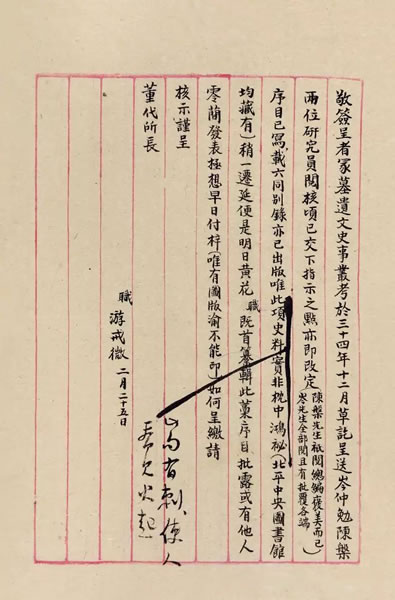 敬簽呈者冢墓遺文史事叢考於三十四年十二月草訖呈送岑仲勉陳槃
兩位研究員閱核頃已交下指示之點亦即改定(陳槃先生祇閱總編褒美而已
岑先生全部閱且有批覆各端)
序目已寫載六同別錄亦已出版唯此項史料實非枕中鴻祕(北平中央圖書館
均藏有)稍一遷延便是明日黃花職既首纂輯此藁序目批露或有他人
零簡發表極想早日付梓(唯有圖版渝不能印)如何呈繳請
核示謹呈
董代所長
職 游戒微 二月二十五日
此句有刺、使人
看之火起